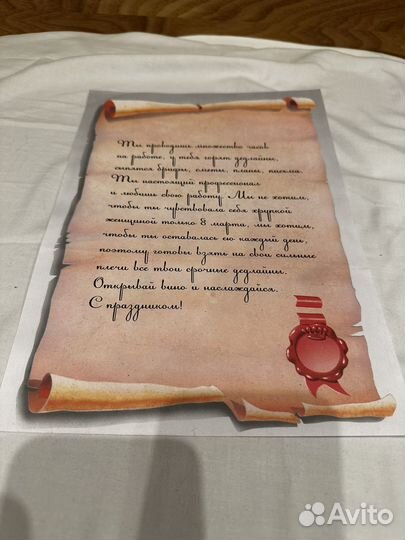 Ты проводишь множество часов
на работе, у тебя горят дедлайны,
сыпятся брифы, сметы, планы, письма.
Ты настоящий профессионал
и любишь свою работу. Мы не хотим,
чтобы ты чувствовала себя хрупкой
женщиной только 8 марта, мы хотим,
чтобы ты оставалась ею каждый день,
поэтому готовы взять на свои сильные
плечи все твои срочные дедлайны.
Открывай вино и наслаждайся.
С праздником!
Avito